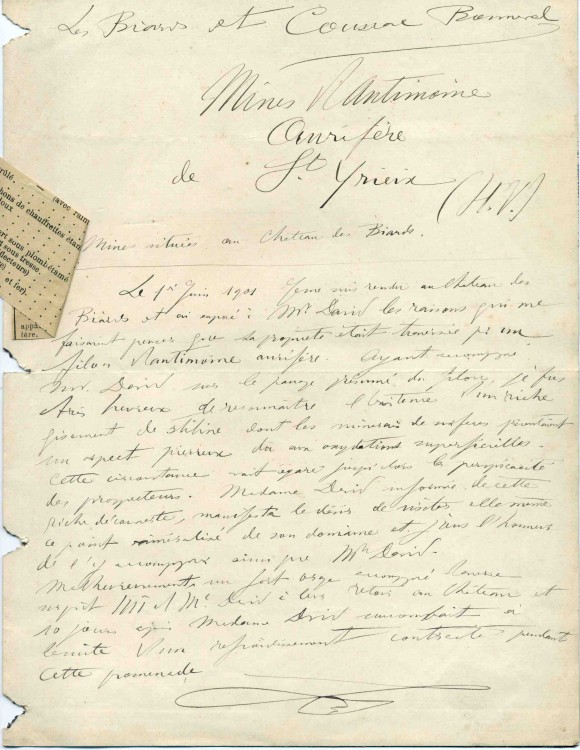 Les Biards et Coussac Bonneval
Mines d'Antimoine
Aurifère
de St Yrieix
(H.V.)
Mines situées au Château des Biards.
Le 1er Juin 1901 Je me suis rendu au Château des
Biards et ai exposé à Mr David les raisons qui me
faisaient penser que sa propriété était traversée par un
filon d'antimoine aurifère. Ayant accompagné
Mr. David sur le passage présumé du filon, je fus
très heureux de reconnaître l'existence d'un riche
gisement de stibine dont les minerais de surface présentaient
un aspect pierreux dû aux oxydations superficielles.
Cette circonstance avait égaré jusqu'alors la perspicacité
des prospecteurs. Madame David informée de cette
riche découverte, manifesta le désir de visiter elle même
ce point minéralisé de son domaine et j'eus l'honneur
de l'y accompagner ainsi que Mr David.
Malheureusement un fort orage accompagné
surprit Mr et Me David à leur retour au Château et
10 jours après Madame David succombait à
la suite d'un refroidissement contracté pendant
cette promenade
rûlé.
(avec rum
bons de chaufferettes étan
oux
ert sous plombétamé
d sous tresse.
flecteurs)
et fer).
appa
tère.